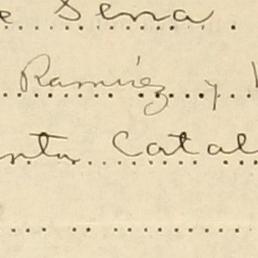 e Sena
Ramírez y
nta Catal